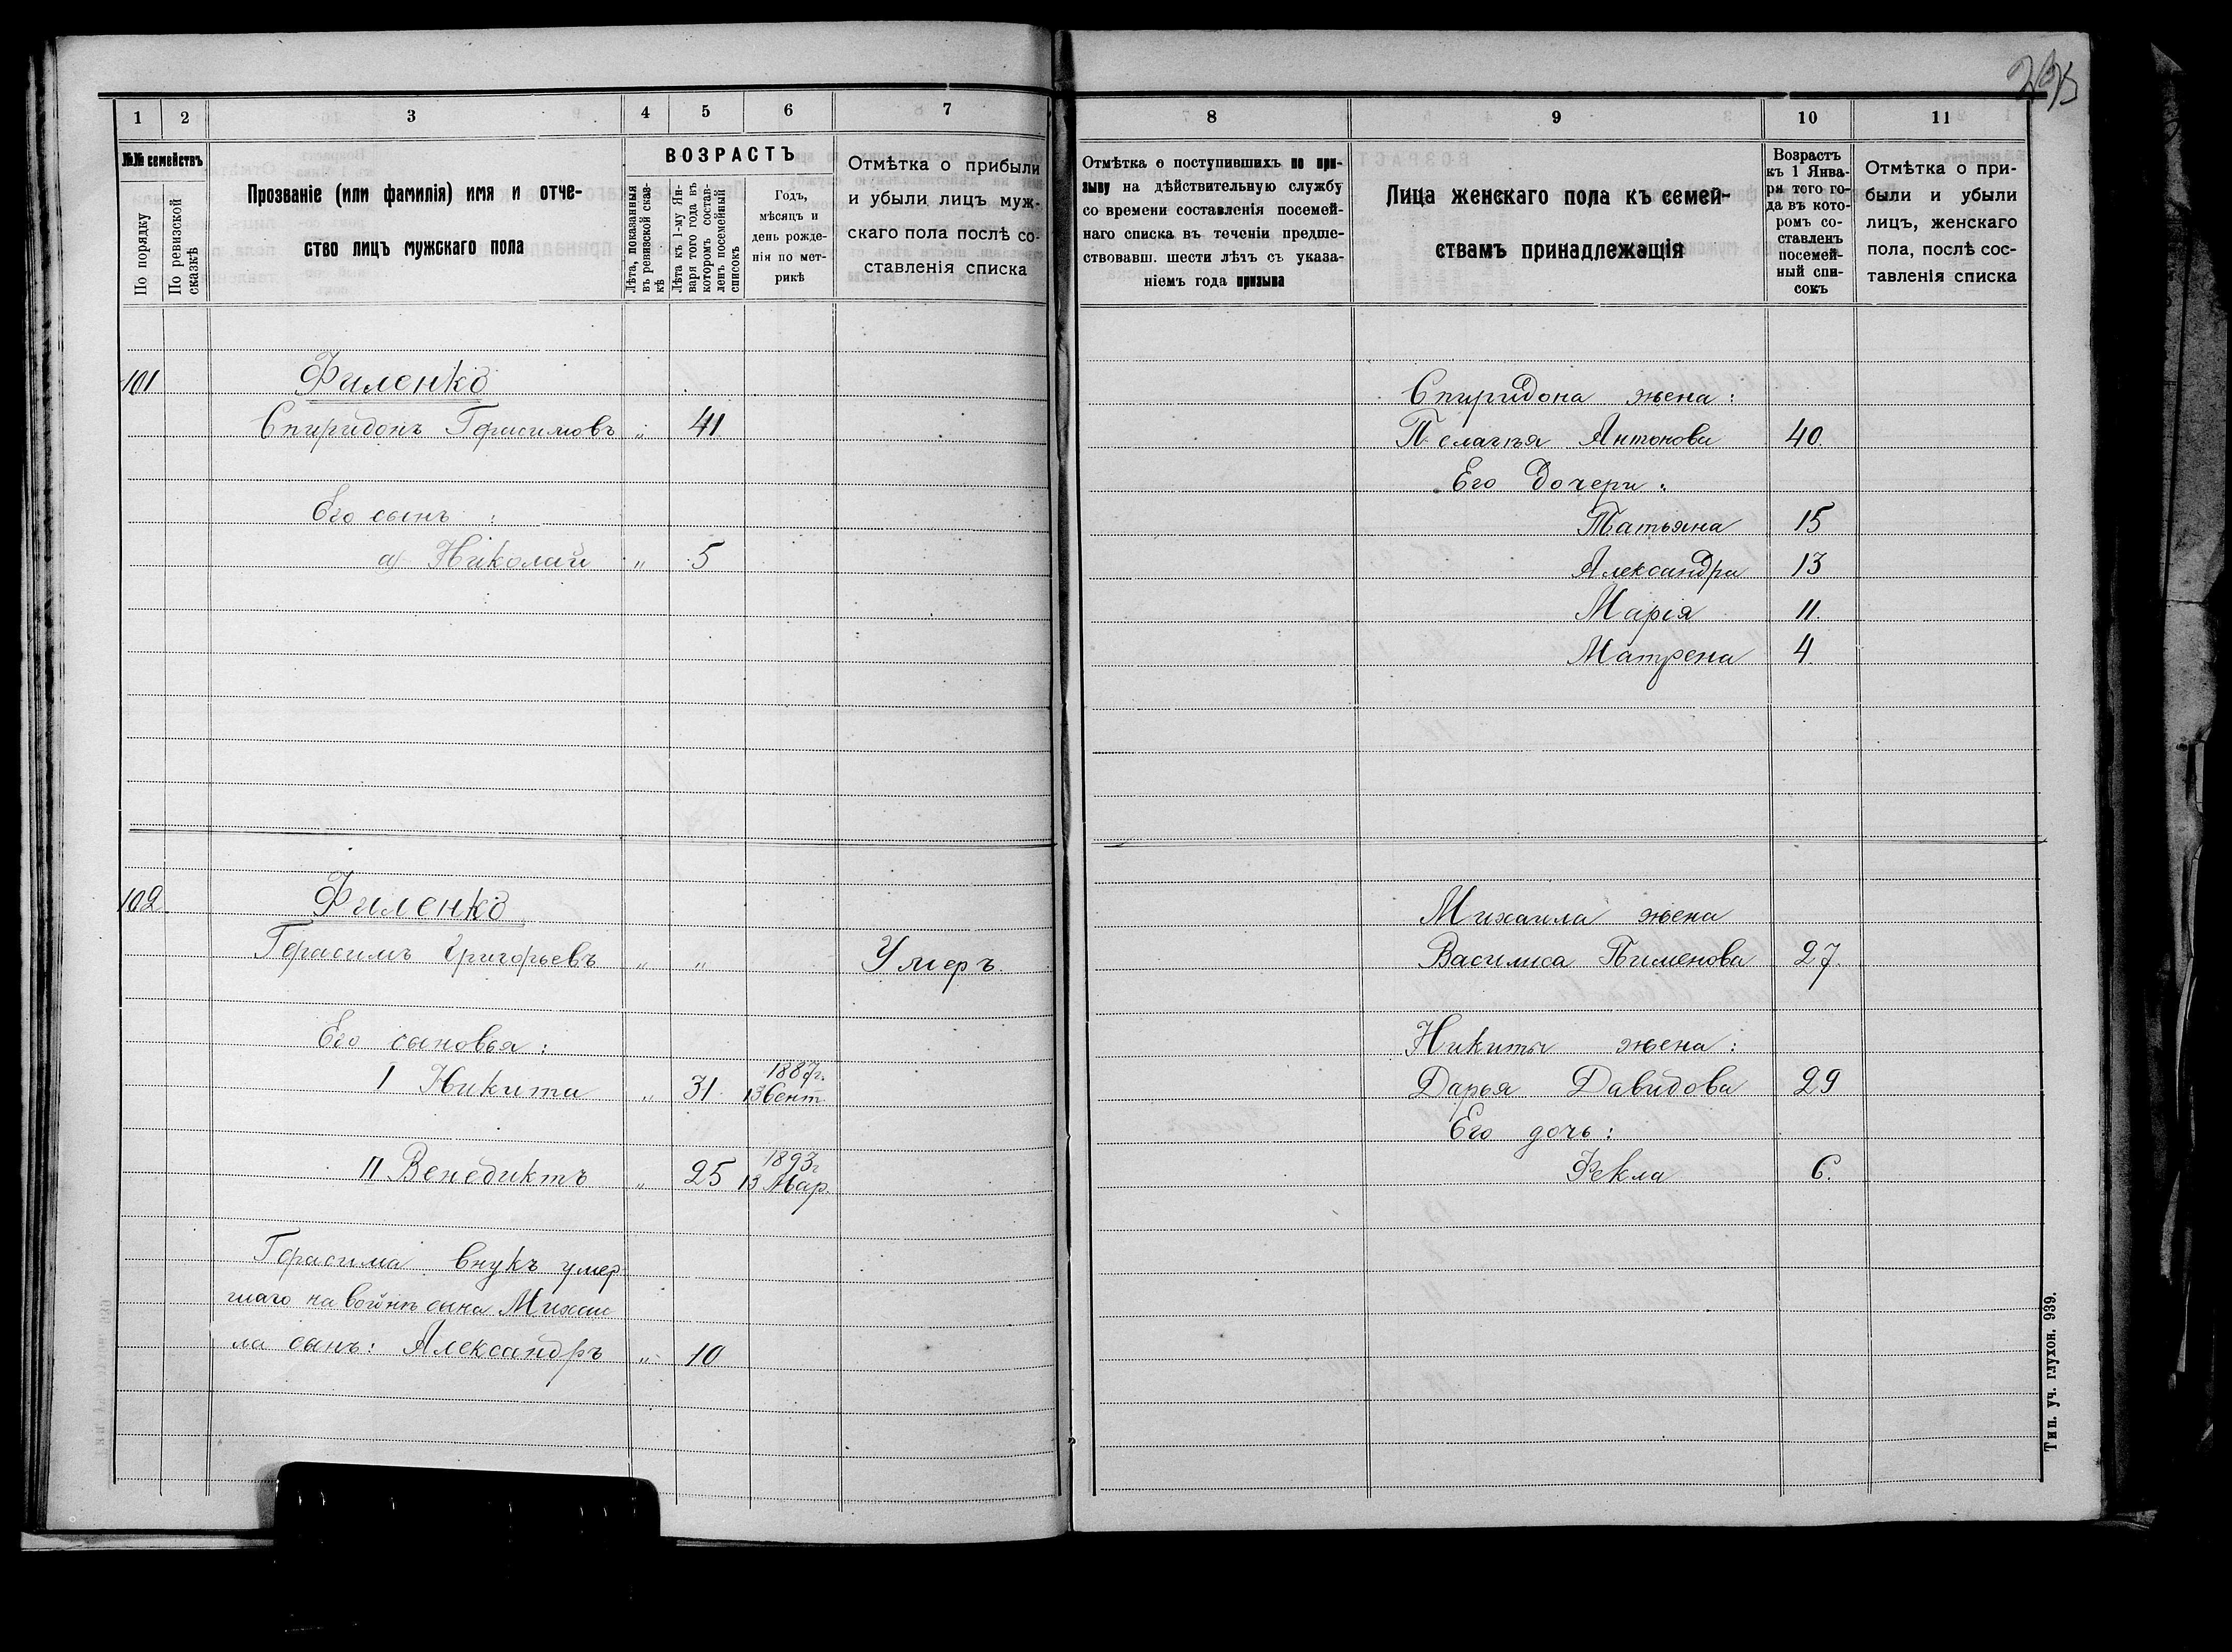 1 2 3 4 5 6 7
№№ семействъ
По порядку
По ревизской сказкѣ
Прозваніе (или фамилія) имя и отче-
ство лицъ мужскаго пола
ВОЗРАСТЪ
Лѣта, показанныя
въ ревизской сказ-
кѣ
Лѣта къ 1-му Ян-
варя того года въ
которомъ состав-
ленъ посемейный
списокъ
Годъ,
мѣсяцъ и
день рожде-
нія по мет-
рикѣ
Отмѣтка о прибыли
и убыли лицъ муж-
скаго пола послѣ со-
ставленія списка
101 Филенко
Спиридонъ Герасимовъ „ 41
Его сынъ:
а) Николай „ 5
102 Филенко
Герасимъ Григорьевъ „ „ Умеръ.
Его сыновья:
I Никита „ 31 1887г.
13 Сент.
II Венедиктъ „ 25 1893г
13 Мар.
Герасима внукъ умер
шаго на войнѣ сына Михаи
ла сынъ: Александръ „ 10
8 9 10 11
Отмѣтка о поступившихъ по при-
зыву на дѣйствительную службу
со времени составленія посемей-
наго списка въ теченіи предше-
ствовавш. шести лѣтъ съ указа-
ніемъ года призыва
Лица женскаго пола къ семей-
ствамъ принадлежащія
Возрастъ
къ 1 Янва-
ря того го-
да въ кото-
ромъ со-
ставленъ
посемей-
ный спи-
сокъ
Отмѣтка о при-
были и убыли
лицъ, женскаго
пола, послѣ сос-
тавленія списка
Спиридона жена:
Пелагѣя Антонова 40.
Его дочери:
Татьяна 15
Александра 13
Марія 11.
Матрена 4.
Михаила жена
Василиса Пименова 27.
Никиты жена:
Дарья Давидова 29
Его дочь:
Фекла 6.
Тип. уч. глухон. 939.